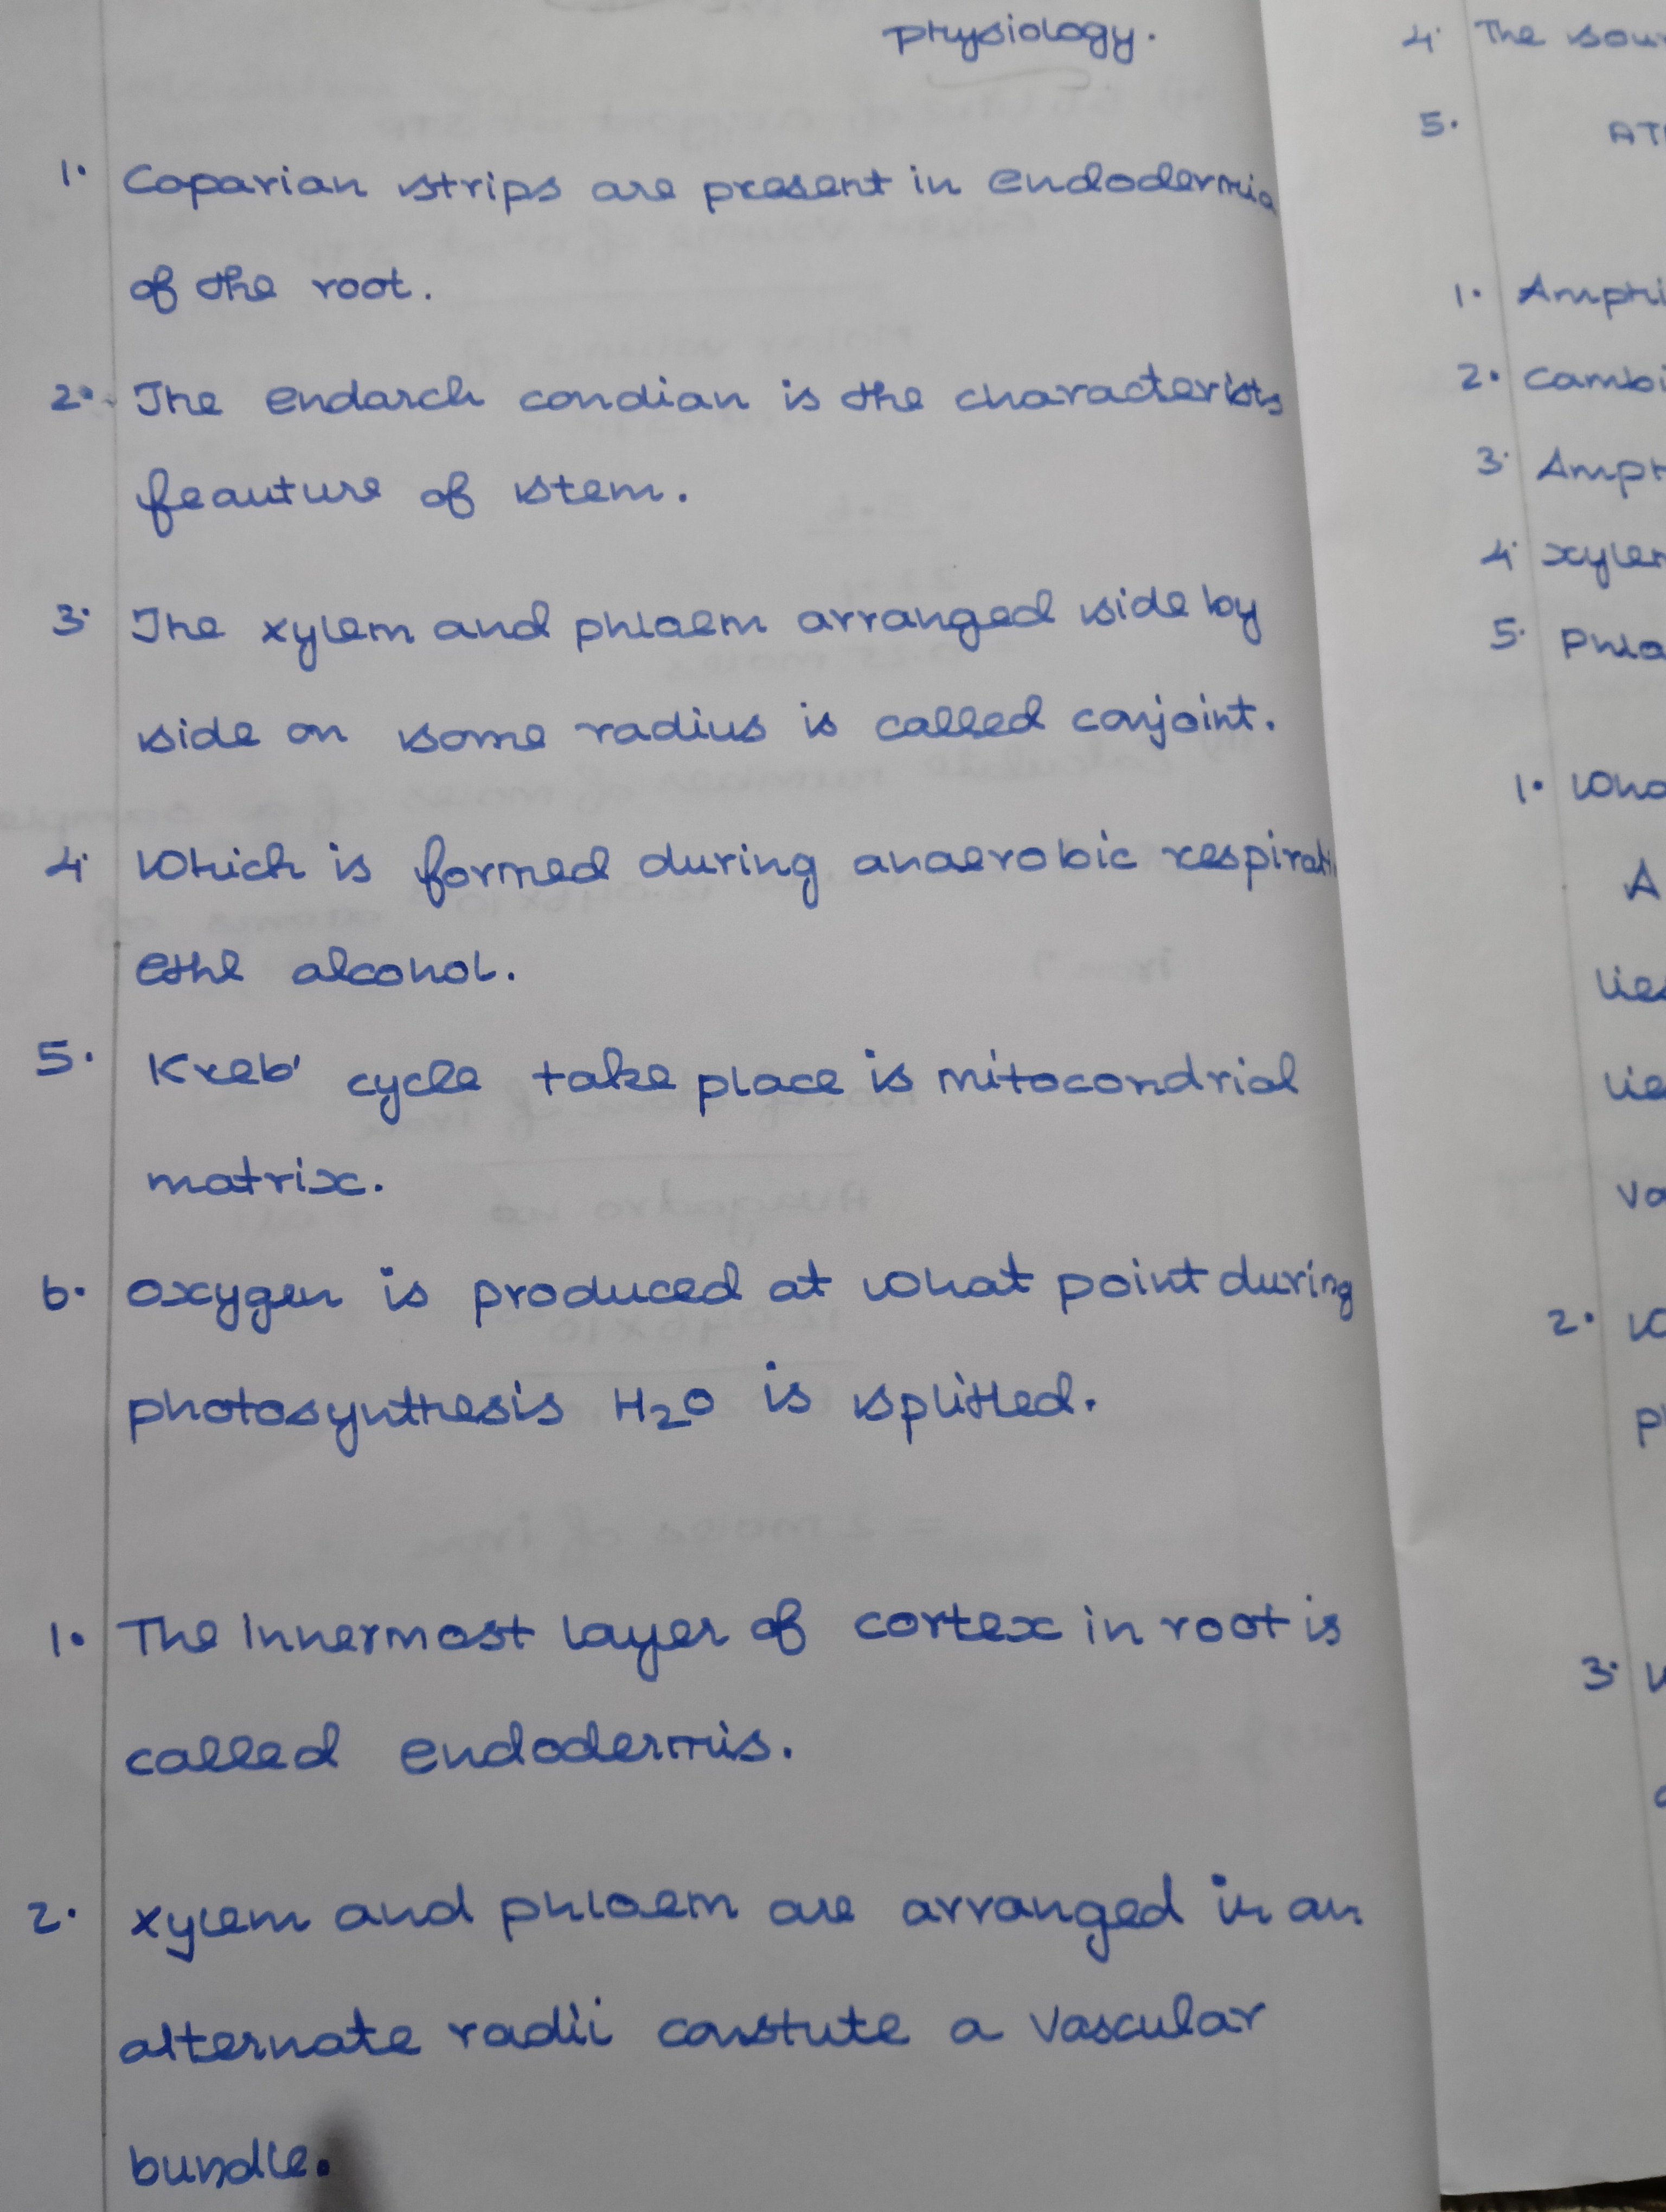 physiology.
1. Caparian strips are present in endodermia
of the root.
2. The endarch condian is the characterists
feauture of stem.
3. The xylem and phlaem arranged side by
side on some radius is called conjoint.
4. Which is formed during anaerobic respirati
ethl alcohol.
5. Kreb' cycle take place is mitocondrial
matrix.
6. oxygen is produced at what point during
photosynthesis H2O is splitted.
1. The innermost layer of cortex in root is
called endodermis.
2. xylem and phloem are arranged in an
alternate radii constute a vascular
bundle.
4. The sour
5. ATP
1. Amphi
2. Cambi
3. Amph
4. xylem
5. Phlo
1. Wha
A
lies
lie
va
2. W
ph
3. W